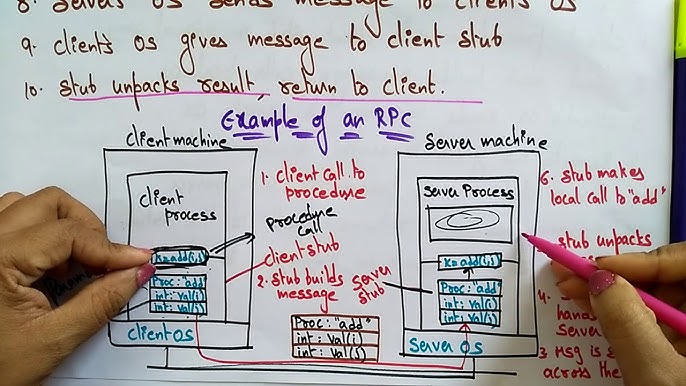 8. Servers OS sends message to clients OS
9. clients OS gives message to client stub
10. stub unpacks result, return to client.
Example of an RPC
client machine
client
process
k=add(i,j)
Proc: "add"
int: val(i)
int: val(j)
client OS
1. client call to
procedure
procedure
call
client stub
2. stub builds
message
Proc: "add"
int: val(i)
int: val(j)
server
stub
Server machine
Server Process
k=add(i,j)
Proc: "add"
int: val(i)
int: val(j)
Server OS
6. stub makes
local call to "add"
stub unpacks
4.
hands
Server
3 Msg is
across the